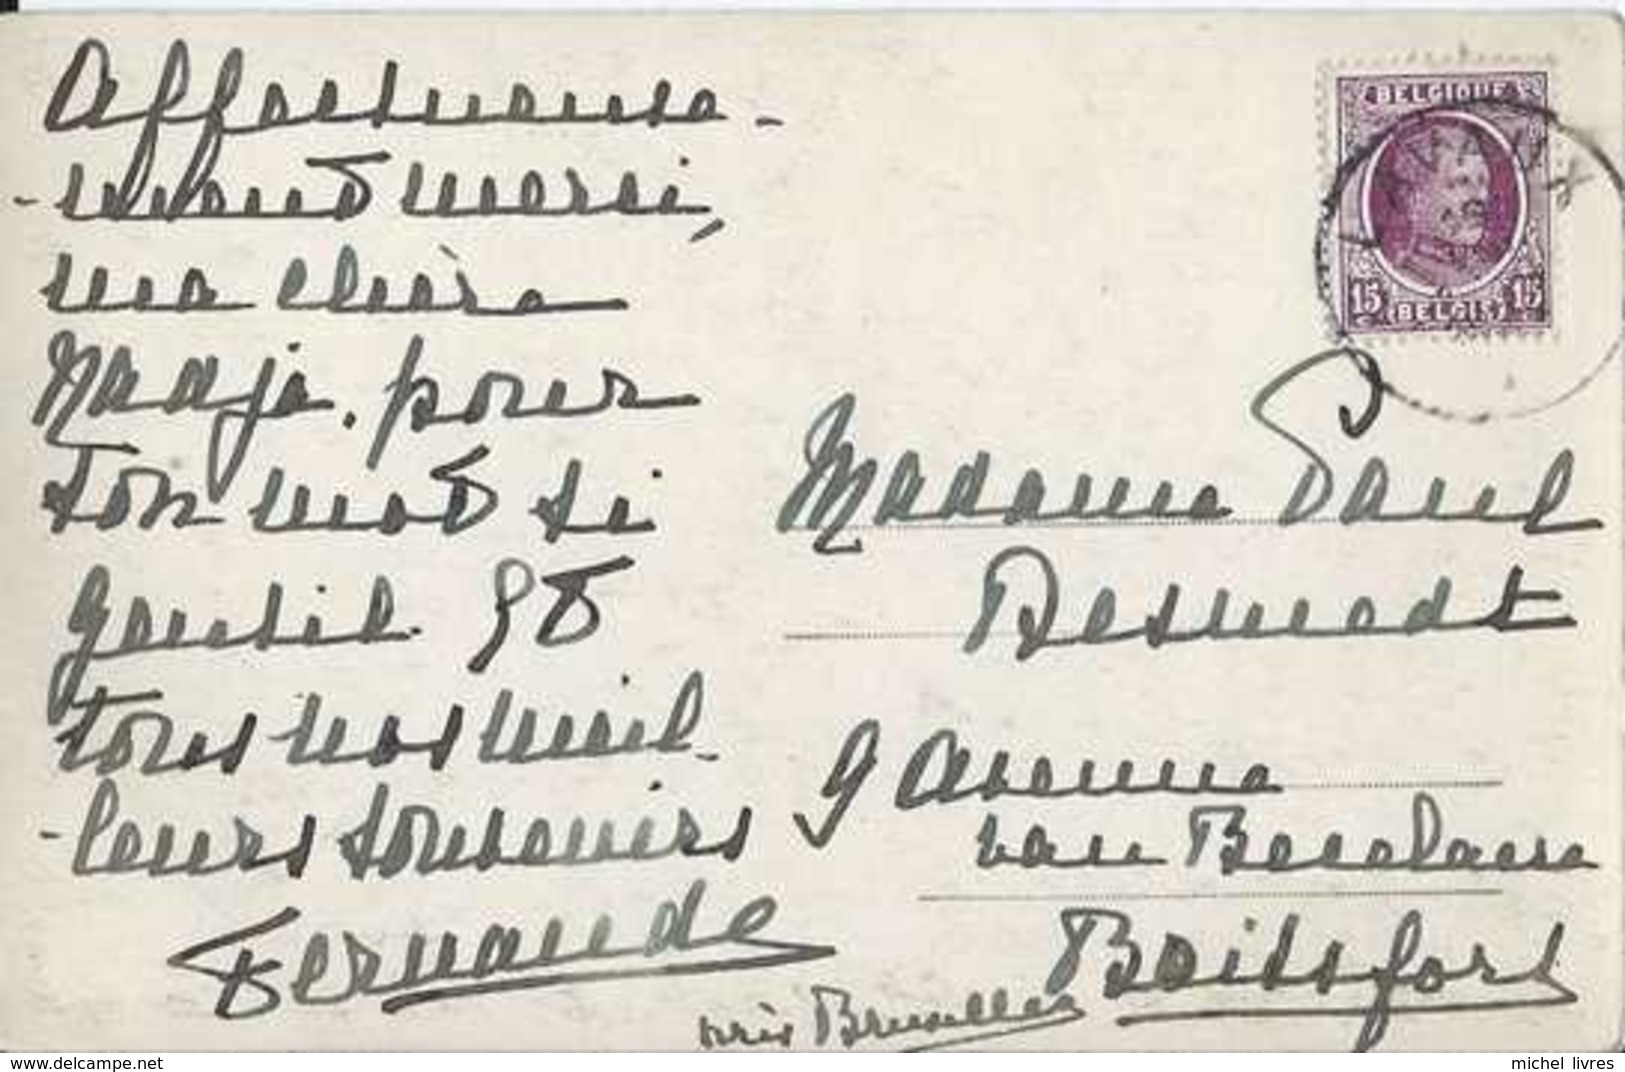 Affectueuse-
-ment merci,
ma chère
Nadje. pour
ton mot si
gentil et
tous nos meil-
-leurs souvenirs
Fernande
BELGIQUE
15 BELGIË 15
Madame Paul
Desmedt
9 Avenue
van Becelaere
Boitsfort
près Bruxelles
delcampe.net
michel_livres